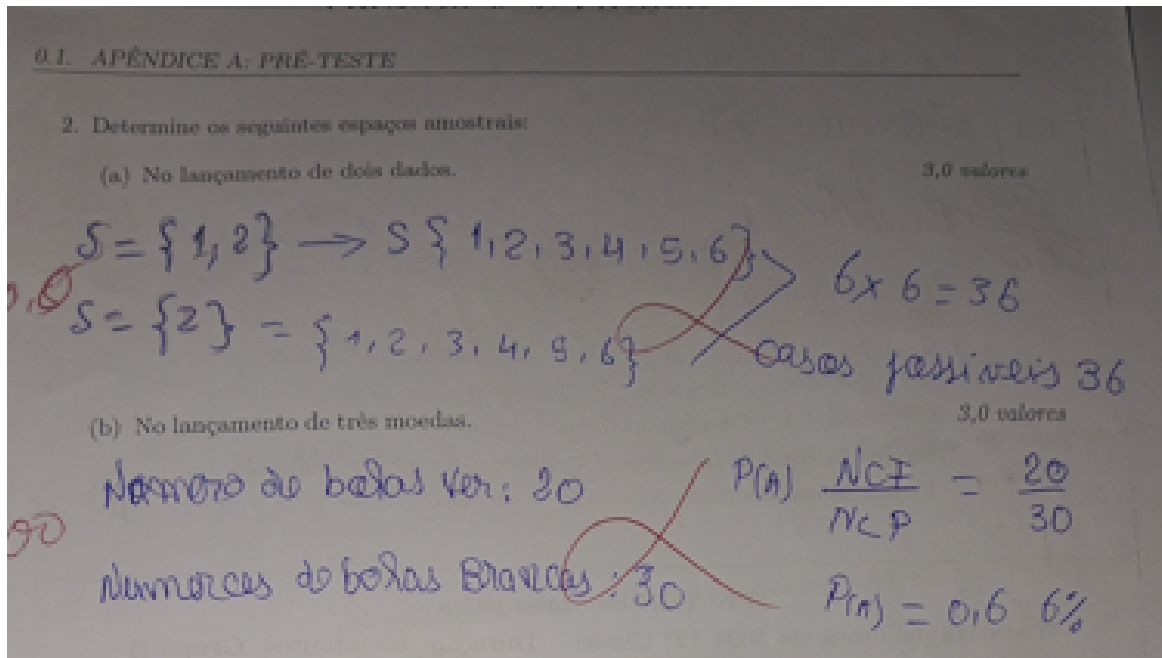 0.1. APÊNDICE A: PRÉ-TESTE
2. Determine os seguintes espaços amostrais:
(a) No lançamento de dois dados. 3,0 valores
S = {1,2} → S { 1,2,3,4,5,6}
6x6=36
S= {2} = {1,2,3,4,5,6}
casos possiveis 36
(b) No lançamento de três moedas. 3,0 valores
de bolas ver: 20 P(A) NCF/NCP = 20/30
de bolas Brancas: 30
P(A) = 0,6 6%